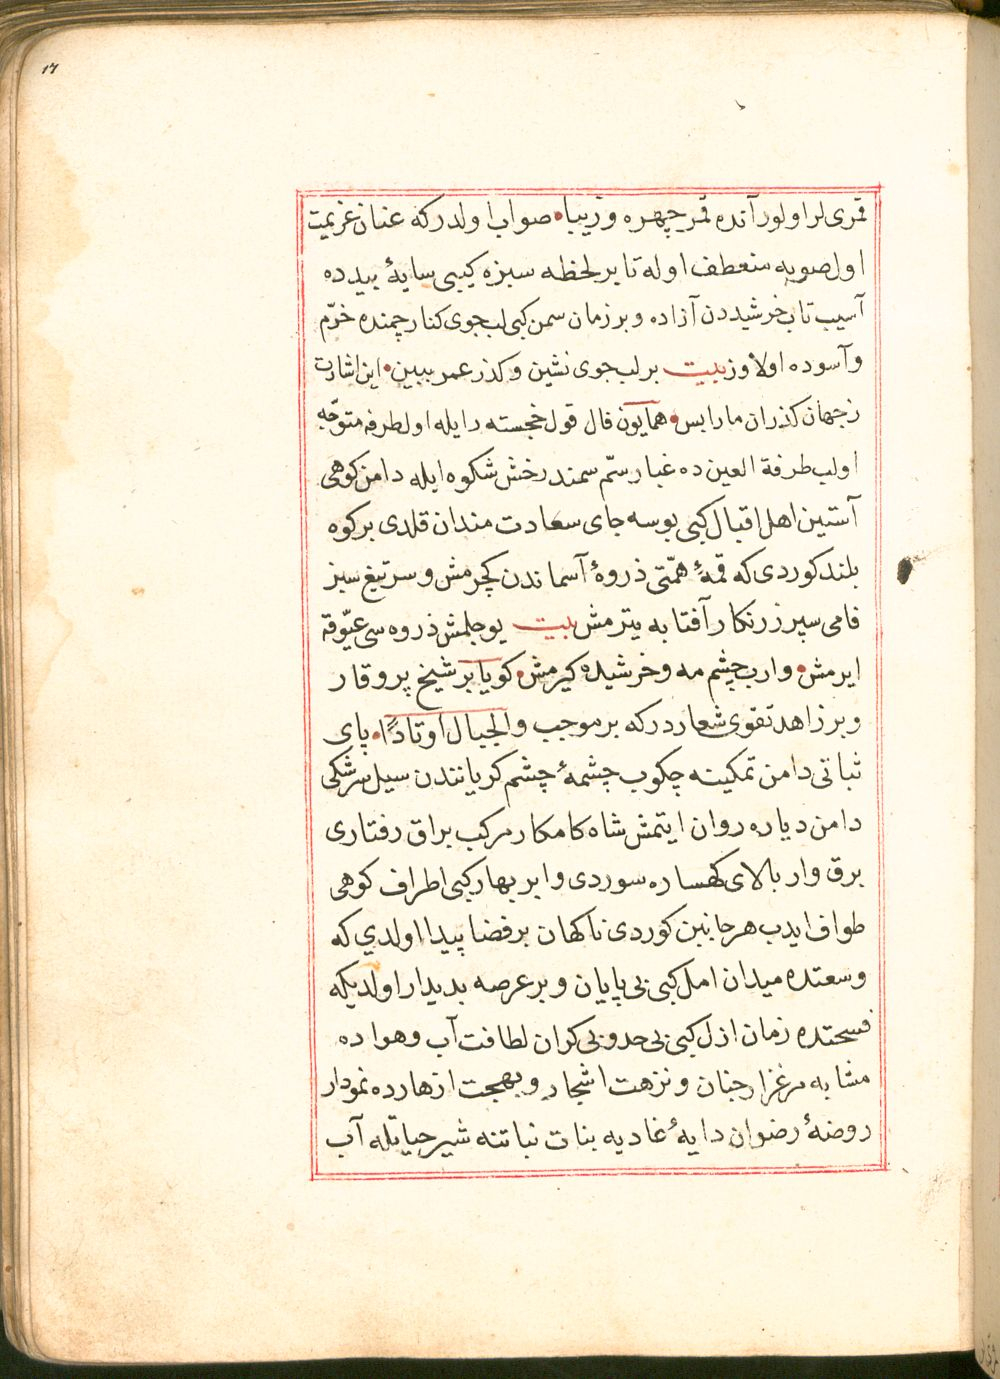 ١٦
قمری لر اولور آنده قمر چهره و زیبا • صواب اولدر که عنان عزیمت
اول صوبه منعطف اوله تا بر لحظه سبزه کیبی سایۀ بیدده
آسیب تاب خرشیددن آزاده و بر زمان سمن کبی لب جوی کنار چمنده خرّم
و آسوده اولاوز بیت بر لب جوی نشین و کذر عمر ببین • این اشارت
ز جهان کذران ما را بس • همایون فال قول خجسته رایله اول طرفه متوجّه
اولب طرفة العین ده غبار سمّ سمند رخش شکوه ایله دامن کوهی
آستین اهل اقبال کبی بوسه جای سعادت مندان قلدی بر کوه
بلند کوردی که قمۀ همّتی ذروۀ آسماندن کچرمش و سر تیغ سبز
فامی سپر زرنکار آفتابه یترمش بیت یوجلمش ذروه سی عیّوقه
ایرمش • وارب چشم مه و خرشیده کیرمش • کویا بر شیخ پروقار
و بر زاهد تقوی شعاردر که بر موجب والجبال اوتادًا • پای
ثباتی دامن تمکینه چکوب چشمۀ چشم کریانندن سیل سرشکی
دامن دیاره روان ایتمش شاه کامکار مرکب براق رفتاری
برق وار بالای کهساره سوردی و ابر بهار کبی اطراف کوهی
طواف ایدب هر جانبین کوردی ناکهان بر فضا پیدا اولدی که
وسعتده میدان امل کبی بی پایان و بر عرصه بدیدار اولدیکه
فسحتده زمان ازل کبی بی حد و بی کران لطافت آب و هواده
مشابه مرغزار جنان و نزهت اشجار و بهجت ازهارده نمودار
روضۀ رضوان دایۀ غادیه بنات نباتنه شیر حیاتله آب